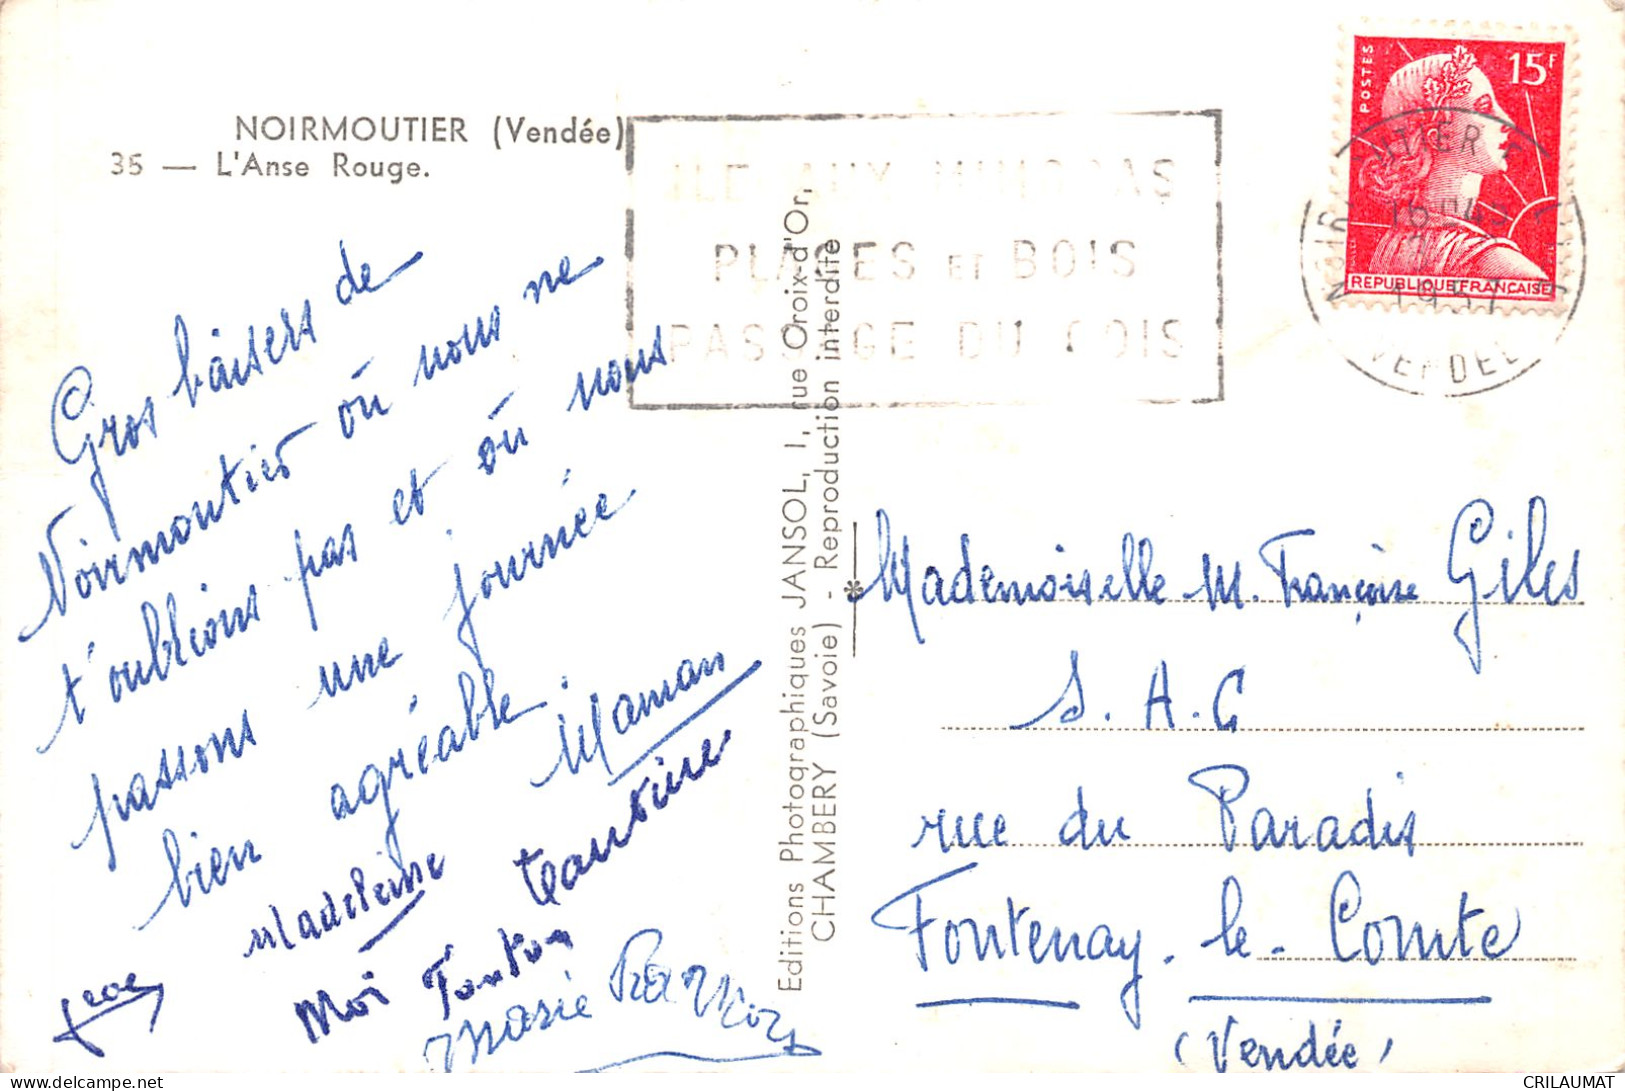 NOIRMOUTIER (Vendée)
35 — L'Anse Rouge.
ILE AUX MIMOSAS
PLAGES ET BOIS
PASSAGE DU GOIS
POSTES
15F
REPUBLIQUE FRANÇAISE
1957
VENDEE
Gros baisers de
Noirmoutier où nous ne
t'oublions pas et où nous
passons une journée
bien agréable
Maman
Madeleine
Tantine
Moi Tonton
Marie
Editions Photographiques JANSOL, 1, rue Croix-d'Or,
CHAMBERY (Savoie) - Reproduction interdite
Mademoiselle M. Françoise Giles
S. A. C
rue du Paradis
Fontenay-le-Comte
(Vendée)
CRILAUMAT